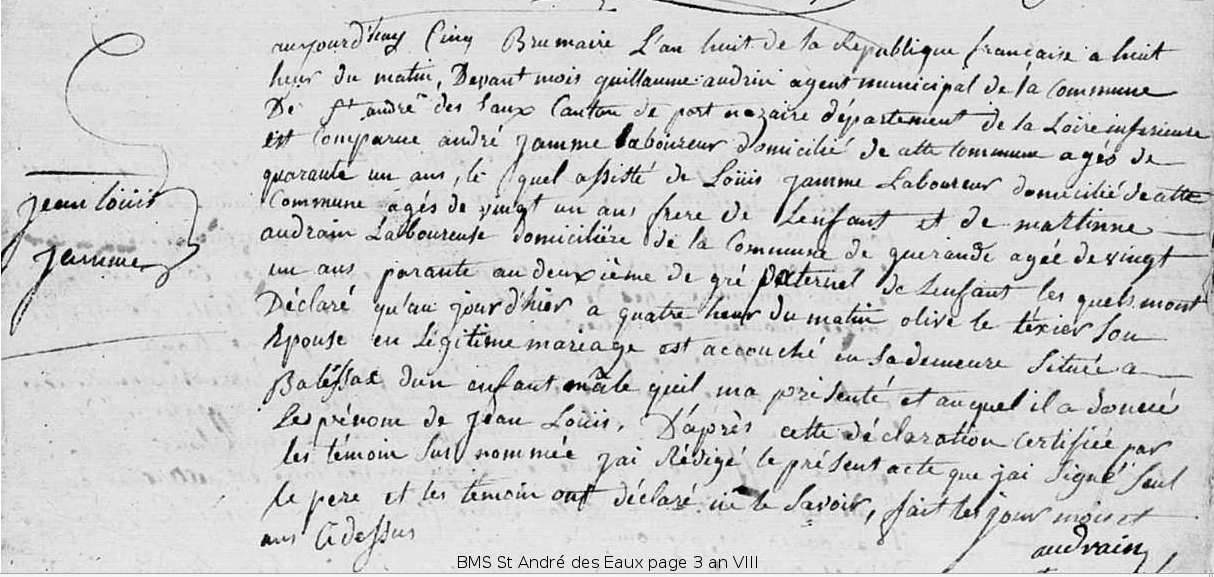 jean loüis
jamme
aujourd'huy Cinq Brumaire L'an huit de la République française a huit
heur du matin, Devant mois guillaume audrin agent municipal de la Commune
De St andré des Eaux Canton de port nazaire département de la Loire inferieure
est Comparue andré jamme laboureur domicilié de cette Commune agés de
quarante un ans, le quel assisté de Loüis jamme Laboureur domicilié de cette
Commune agés de vingt un ans frere de Lenfant et de martinne
audrain Laboureuse domicilière de la Commune de guerande agée de vingt
un ans parante au deuxième de gré paternel de Lenfant les quels mont
Déclaré qu'au jour d'hier a quatre heur Du matin olive le texier Son
Epouse en Légitime mariage est accouché en sa demeure Située a
d'un enfant mâle quil ma présenté et auquel il a donné
Les prénom de Jean Loüis. D'après cette déclaration certifiée par
les témoin sus nommée jai Rédigé le présent acte que jai Signé Seul
le pere et les témoin ont déclaré ne le Savoir, fait les jour mois et
ans Cidessus
audrain
BMS St André des Eaux page 3 an VIII